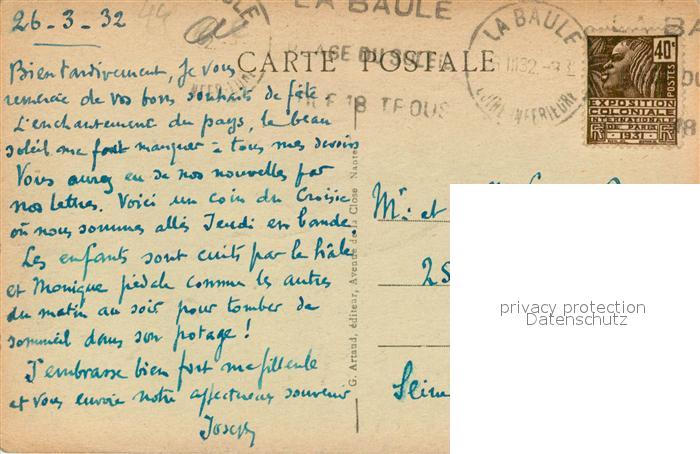 26-3-32
LA BAULE
CARTE POSTALE
LA BAULE
40c
POSTES
EXPOSITION
COLONIALE
INTERNATIONALE
DE PARIS
1931
Bien tardivement, je vous
remercie de vos bons souhaits de fête
L'enchantement du pays, le beau
soleil me font manquer à tous mes devoirs
Vous aurez eu de nos nouvelles par
nos lettres. Voici un coin du Croisic
où nous sommes allés Jeudi en bande.
Les enfants sont cuits par le hâle
et Monique pédale comme les autres
du matin au soir pour tomber de
sommeil dans son potage !
J'embrasse bien fort ma filleule
et vous envoie notre affectueux souvenir
Joseph
G. Artaud, éditeur, Avenue de la Close Nantes
Mr. et
25
Seine
privacy protection
Datenschutz